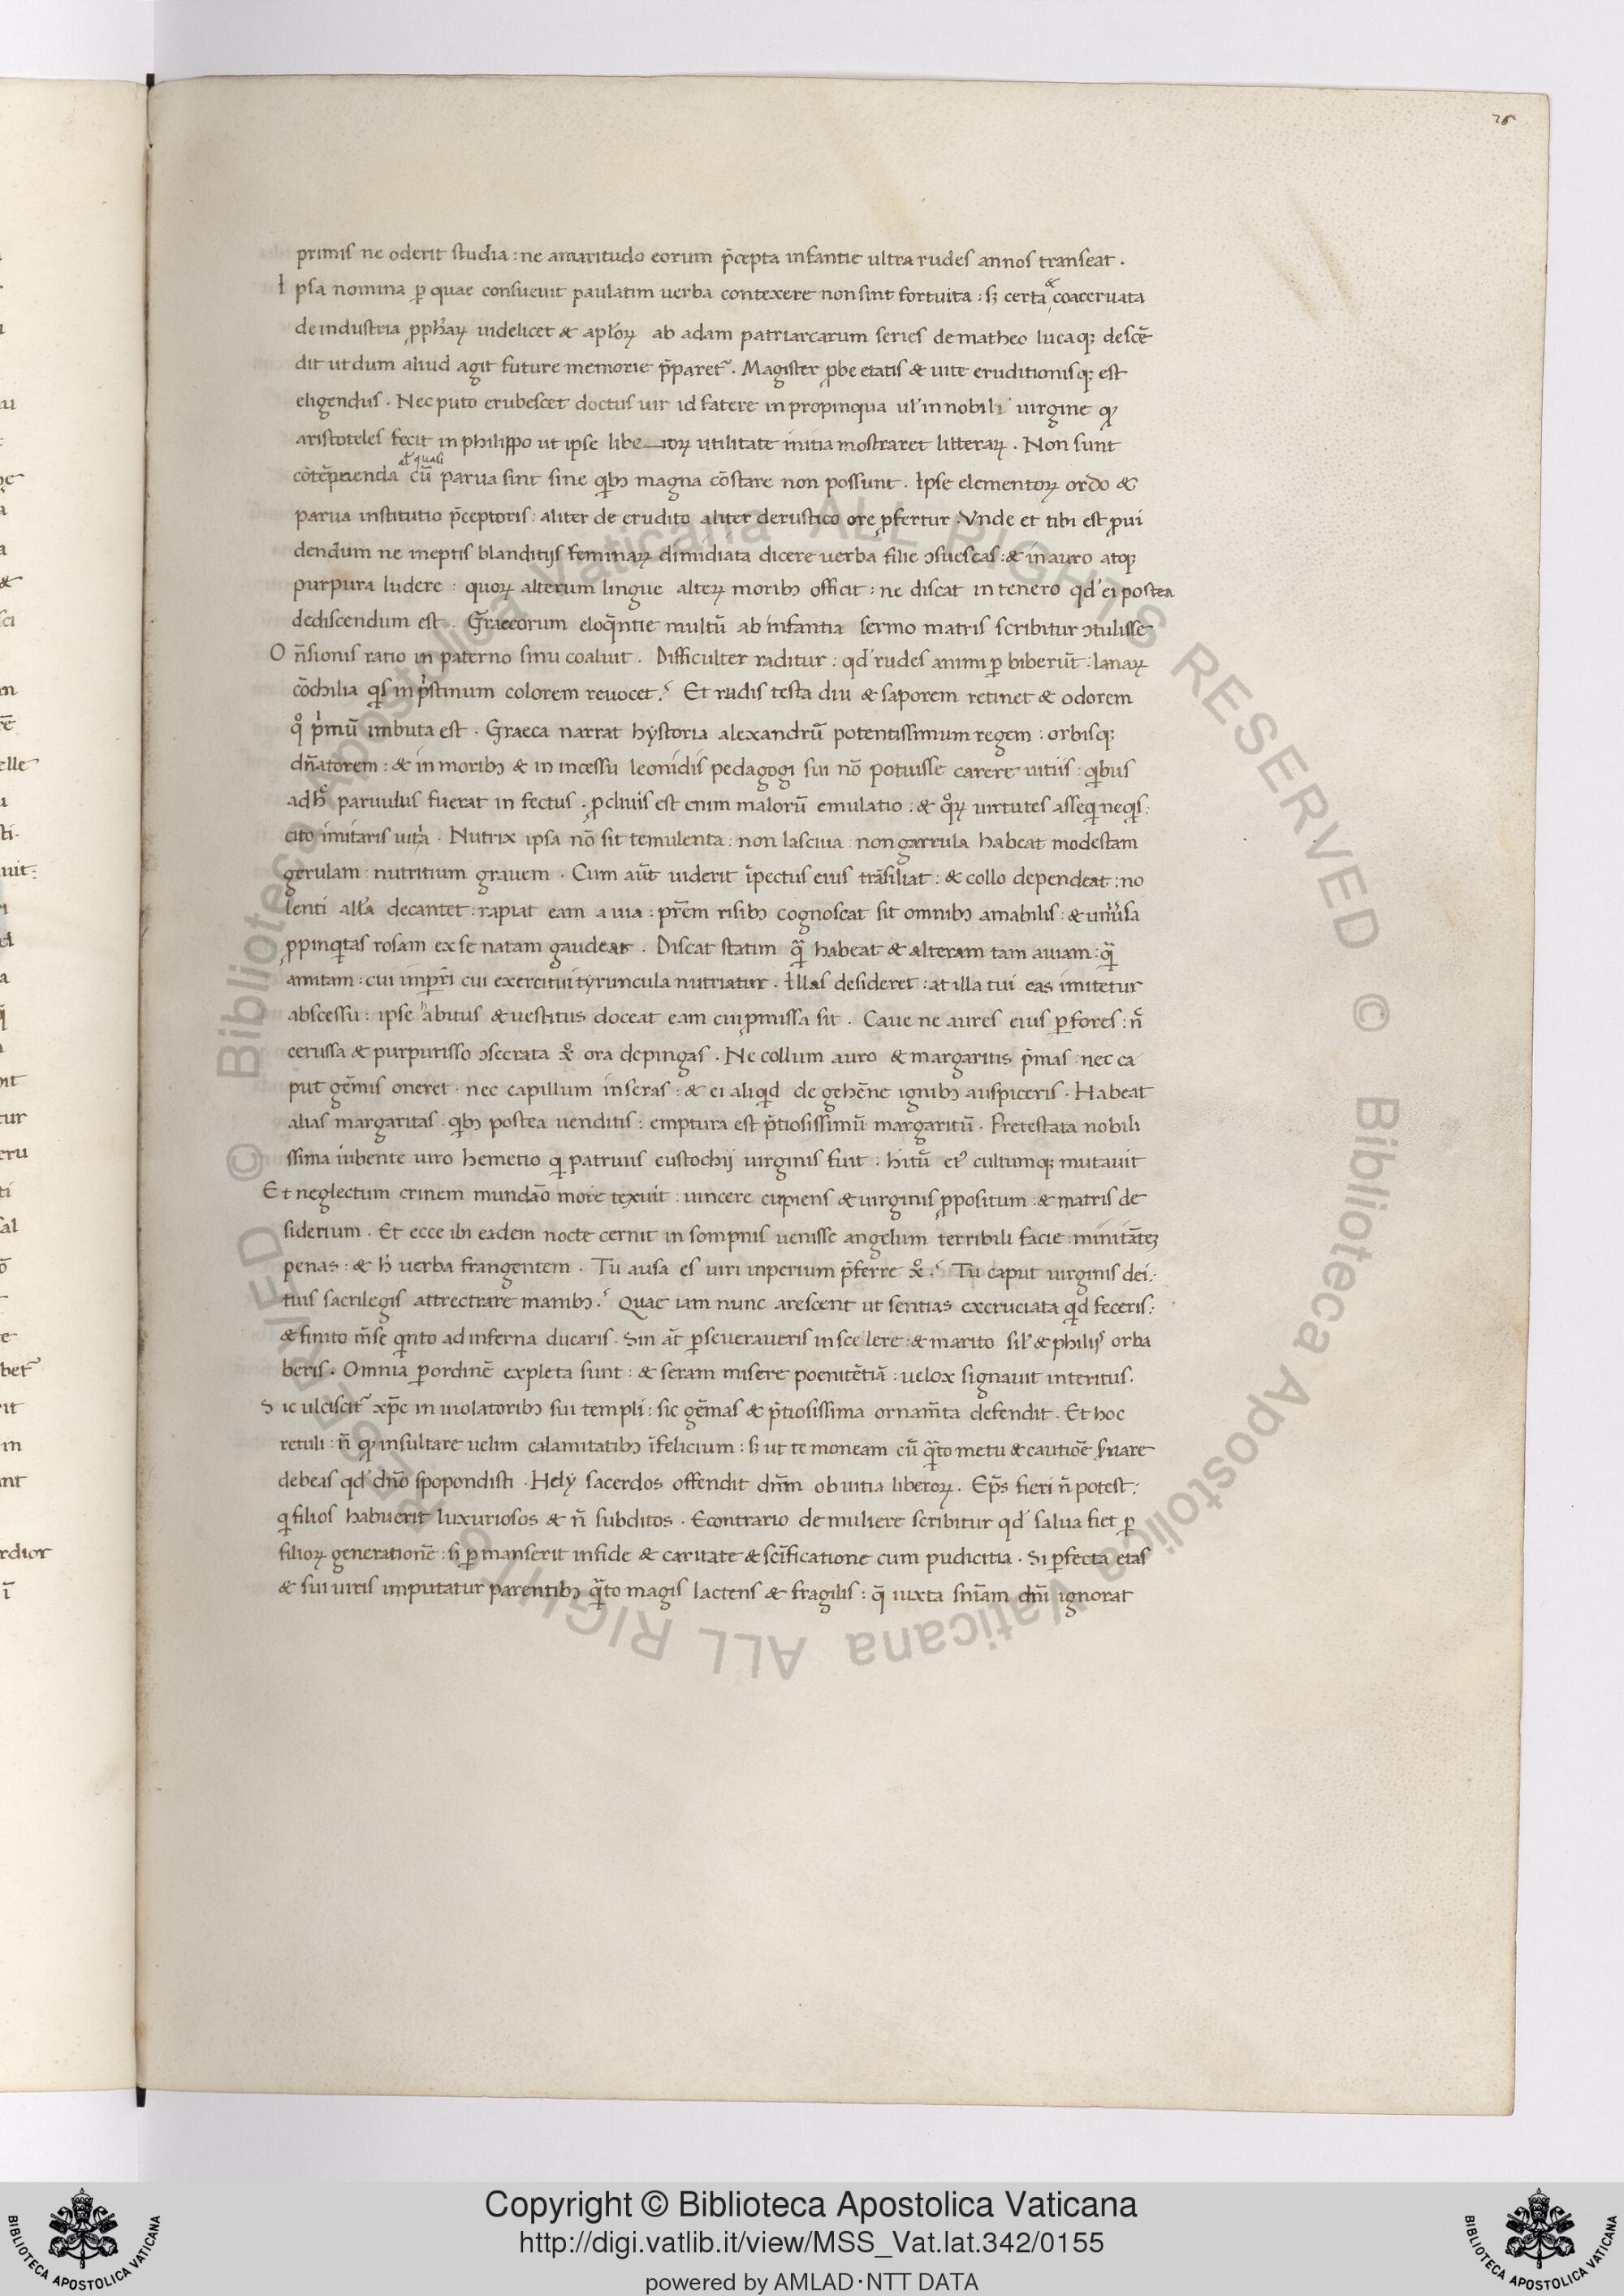 75
primis ne oderit studia : ne amaritudo eorum p̄cepta infantie ultra rudes annos transeat .
Ipsa nomina ꝑ quae consueuit paulatim uerba contexere non sint fortuita : sꝫ certa & coaceruata
de industria ꝓph̄aꝝ uidelicet & apl̄oꝝ ab adam patriarcarum series de matheo lucaqꝫ descē
dit ut dum aliud agit future memorie p̄paret᷑ . Magister ꝓbe etatis & uite eruditionisqꝫ est
eligendus . Nec puto erubescet doctus uir id facere in propinqua ul̓ in nobili uirgine qꝫ
aristoteles fecit in philippo ut ipse libe—rioꝝ utilitate initia mostraret litteraꝝ . Non sunt
al̓ quasi
cōtēpnenda cū parua sint sine qib᷒ magna cōstare non possunt . Ipse elementoꝝ ordo &
parua institutio p̄ceptoris : aliter de erudito aliter de rustico ore ꝓfertur . Vnde et tibi est ꝓui
dendum ne ineptis blanditijs feminaꝝ dimidiata dicere uerba filie ↄsuescas : & in auro atqꝫ
purpura ludere : quoꝝ alterum lingue alteꝝ morib᷒ officit : ne discat in tenero qd̓ ei postea
dediscendum est . Graecorum eloq̄ntie multū ab infantia sermo matris scribitur ↄtulisse
On̄sionis ratio in paterno sinu coaluit . Difficulter raditur : qd̓ rudes animi ꝑ biberūt : lanaꝝ
cōchilia qis in pistinum colorem reuocet ? Et rudis testa diu & saporem retinet & odorem
qͦ pimū imbuta est . Graeca narrat hystoria alexandrū potentissimum regem : orbisqꝫ
dn̄atorem : & in morib᷒ & in incessu leonidis pedagogi sui nō potuisse carere uitiis : qibus
adhͨ paruulus fuerat in fectus . ꝓcliuis est enim maloruꝫ emulatio : & qͦꝝ uirtutes asseqi neqis :
cito imitaris uitia . Nutrix ipsa nō sit temulenta : non lasciua : non garrula habeat modestam
gerulam : nutritium grauem . Cum aūt uiderit ī pectus eius trāsiliat : & collo dependeat : no
lenti all̓a decantet : rapiat eam auia : pr̄em risib᷒ cognoscat sit omnib᷒ amabilis : & uniūsa
ꝓpinqitas rosam ex se natam gaudeat . Discat statim qͣ habeat & alteram tam auiam : qͣ
amitam : cui inꝑri cui exercitui tyruncula nutriatur . Illas desideret : at illa tui eas imitetur
abscessu : ipse habitus & uestitus doceat eam cui ꝓmissa sit . Caue ne aures eius ꝑfores : n̄
cerussa & purpurisso ↄsecrata xͦ ora depingas . Ne collum auro & margaritis p̄mas : nec ca
put gēmis oneret : nec capillum in seras : & ei aliqid de gehēne ignib᷒ auspiceris . Habeat
alias margaritas . qib᷒ postea uenditis : emptura est p̄tiosissimū margaritū . Pretestata nobili
ssima iubente uiro hemetio qi patruus eustochij uirginis fuit . hitū ei᷒ cultumqꝫ mutauit
Et neglectum crinem mundāo more texuit : uincere cupiens & uirginis ꝓpositum : & matris de
siderium . Et ecce ibi eadem nocte cernit in sompnis uenisse angelum terribili facie : minitātēꝫ
penas : & h̓ uerba frangentem . Tu ausa es uiri inperium p̄ferre xͦ ? Tu caput uirginis dei :
tuis sacrilegis attrectrare manib᷒ ? Quae iam nunc arescent ut sentias excruciata qid feceris :
& finito m̄se qinto ad inferna ducaris . Sin at̄ ꝑseueraueris in scelere : & marito sil̓ & philijs orba
beris . Omnia ꝑ ordinē expleta sunt : & seram misere poenitētiā : uelox signauit interitus .
Sic ulciscit᷑ xp̄c in uiolatorib᷒ sui templi : sic gēmas & p̄tiosissima ornam̄ta defendit . Et hoc
retuli : n̄ qꝫ insultare uelim calamitatib᷒ īfelicium : sꝫ ut te moneam cū qͣto metu & cautiōe s̄uare
debeas qd̓ dn̄o spopondisti . Hely sacerdos offendit dn̄m ob uitia liberoꝝ . Ep̄s fieri n̄ potest :
qi filios habuerit luxuriosos & n̄ subditos . Econtrario de muliere scribitur qd̓ salua fiet ꝑ
filioꝝ generationē : si ꝑmanserit in fide & caritate & sc̄ificatione cum pudicitia . Si ꝑfecta etas
& sui iuris imputatur parentib᷒ qͣto magis lactens & fragilis : q̄ iuxta sn̄iam dn̄i ignorat
© Biblioteca Apostolica Vaticana ALL RIGHTS RESERVED © Biblioteca Apostolica Vaticana ALL RIGHTS RESERVED
Copyright © Biblioteca Apostolica Vaticana
http://digi.vatlib.it/view/MSS_Vat.lat.342/0155
powered by AMLAD·NTT DATA
BIBLIOTECA APOSTOLICA VATICANA
BIBLIOTECA APOSTOLICA VATICANA